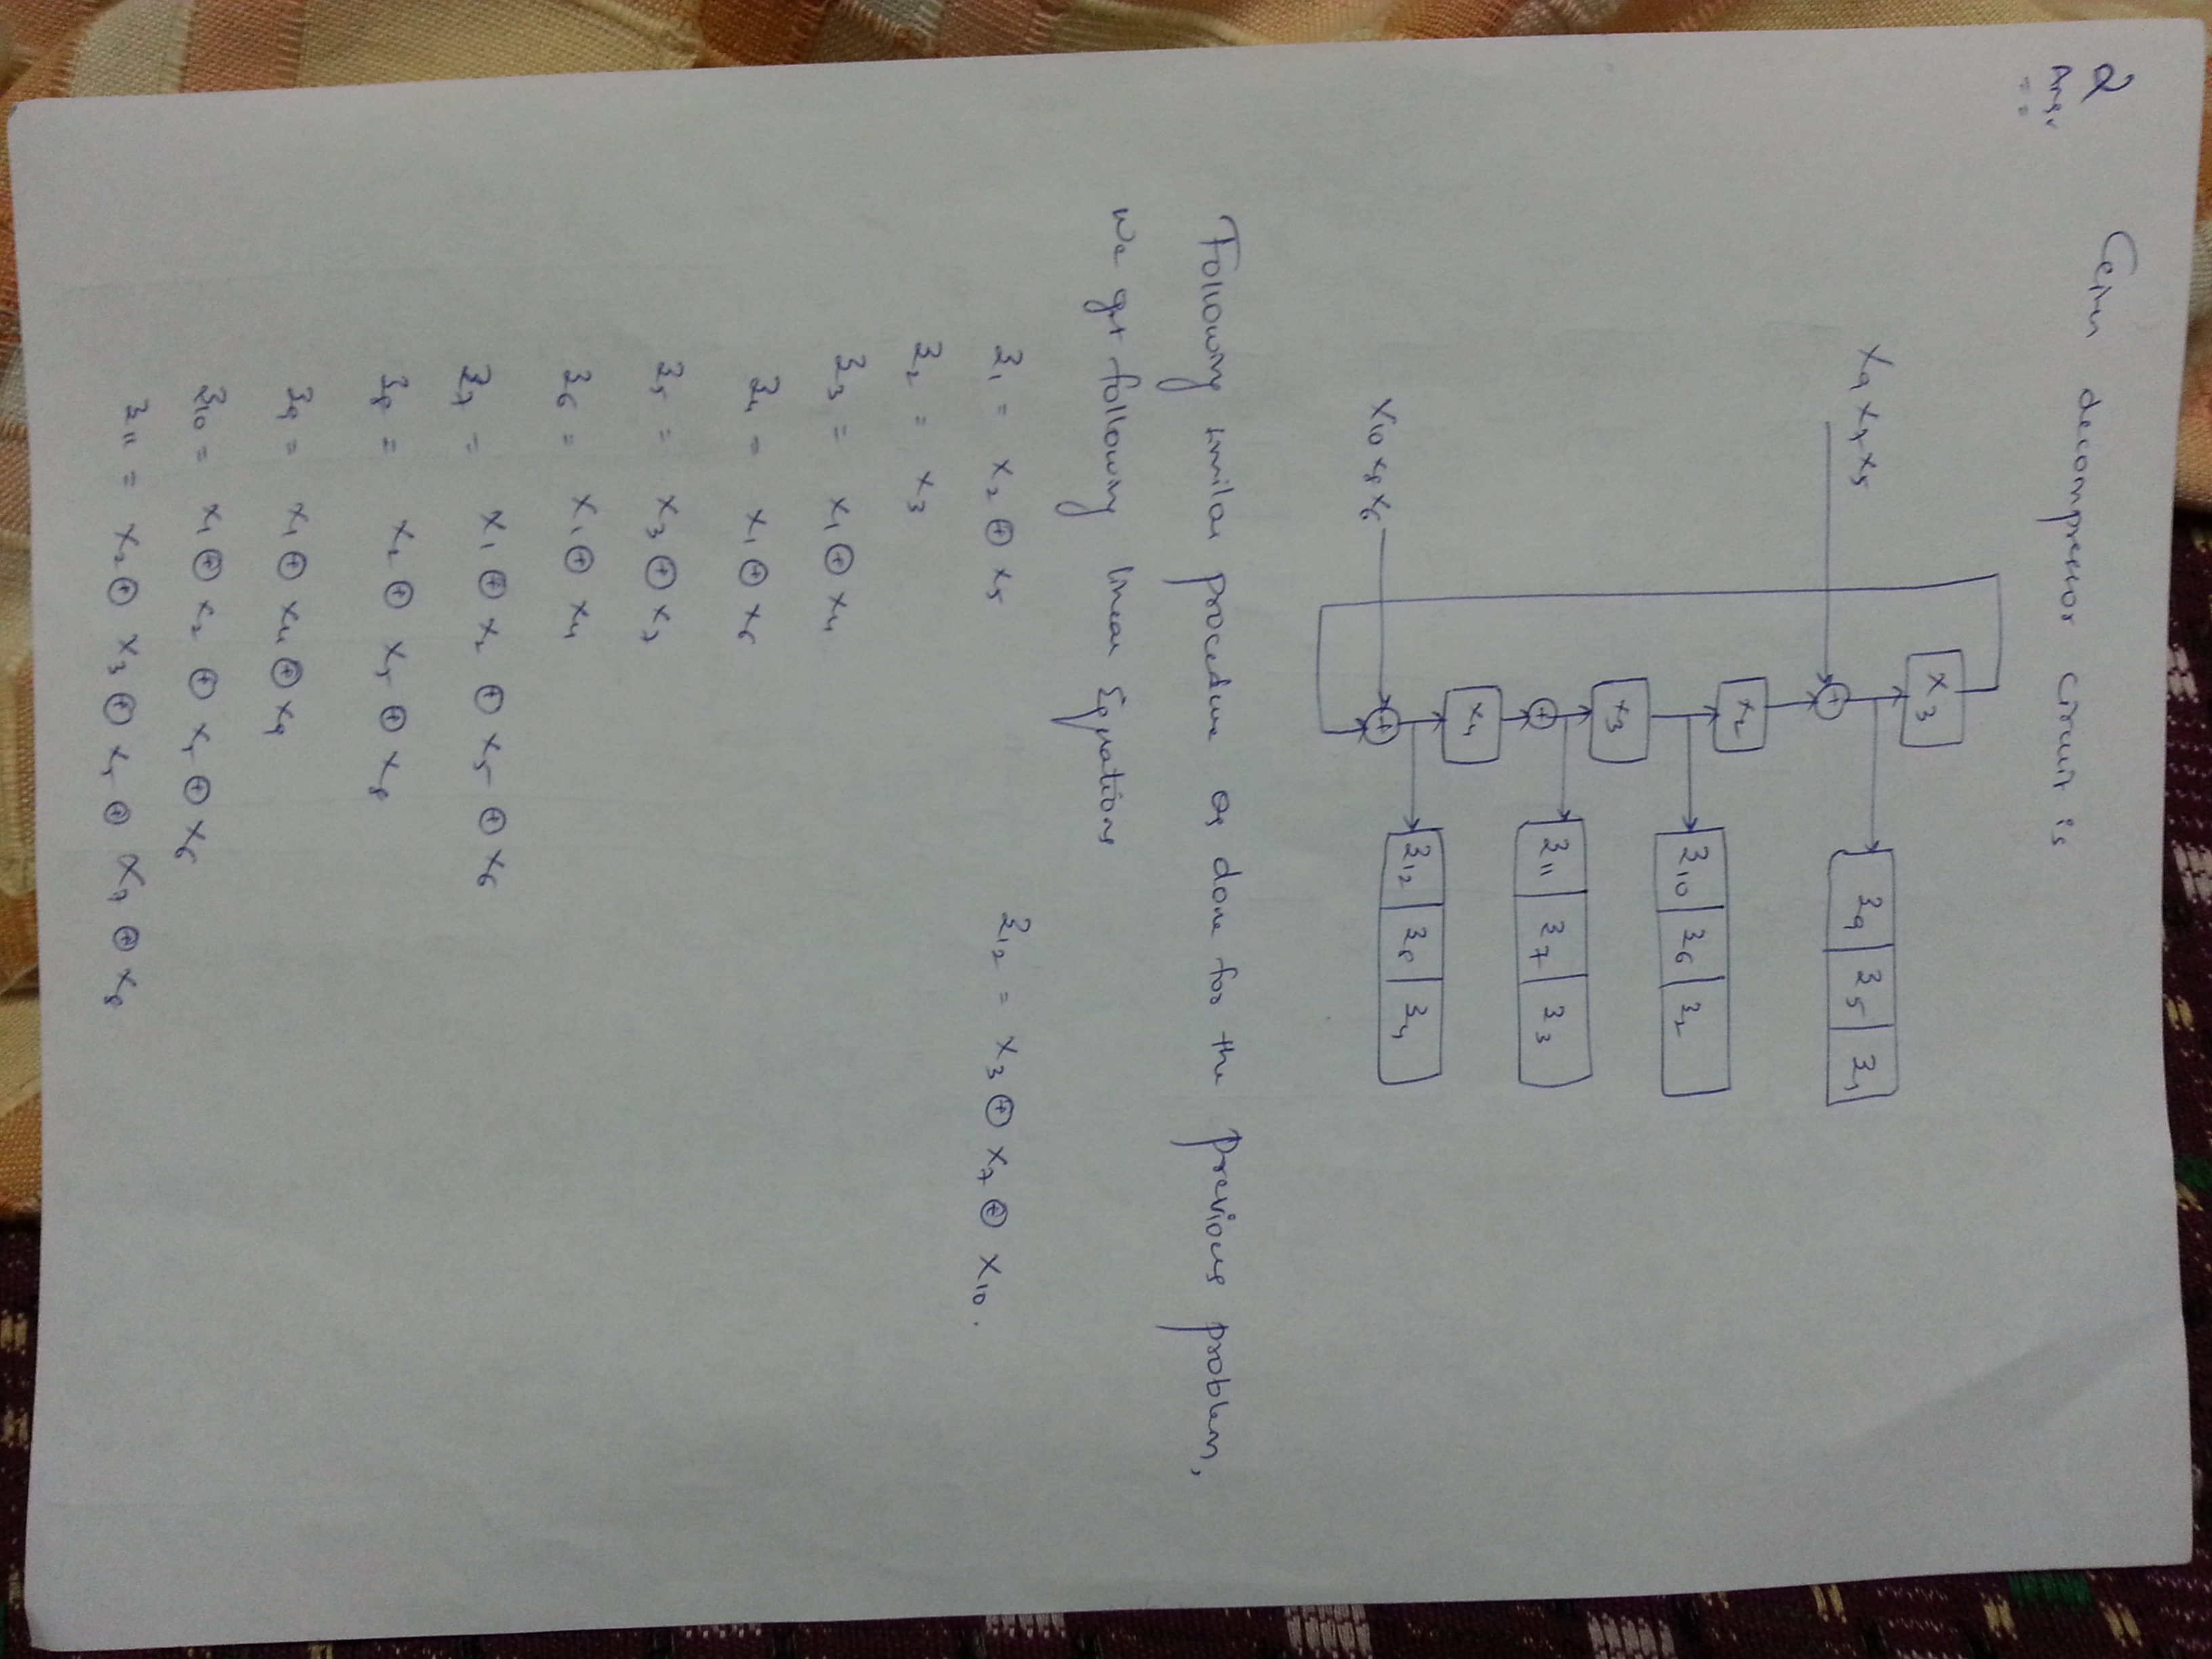 2 Ans:
Given decompressor circuit is
X3
X9 X7 X5
Z9 Z5 Z1
X2
Z10 Z6 Z2
X3
Z11 Z7 Z3
X4
Z12 Z8 Z4
X10 X8 X6
Following similar procedure as done for the previous problem,
We get following linear Equations
Z1 = X2 ⊕ X5 Z12 = X3 ⊕ X7 ⊕ X10.
Z2 = X3
Z3 = X1 ⊕ X4
Z4 = X1 ⊕ X6
Z5 = X3 ⊕ X7
Z6 = X1 ⊕ X4
Z7 = X1 ⊕ X2 ⊕ X5 ⊕ X6
Z8 = X2 ⊕ X5 ⊕ X8
Z9 = X1 ⊕ X4 ⊕ X9
Z10 = X1 ⊕ X2 ⊕ X5 ⊕ X6
Z11 = X2 ⊕ X3 ⊕ X5 ⊕ X7 ⊕ X8